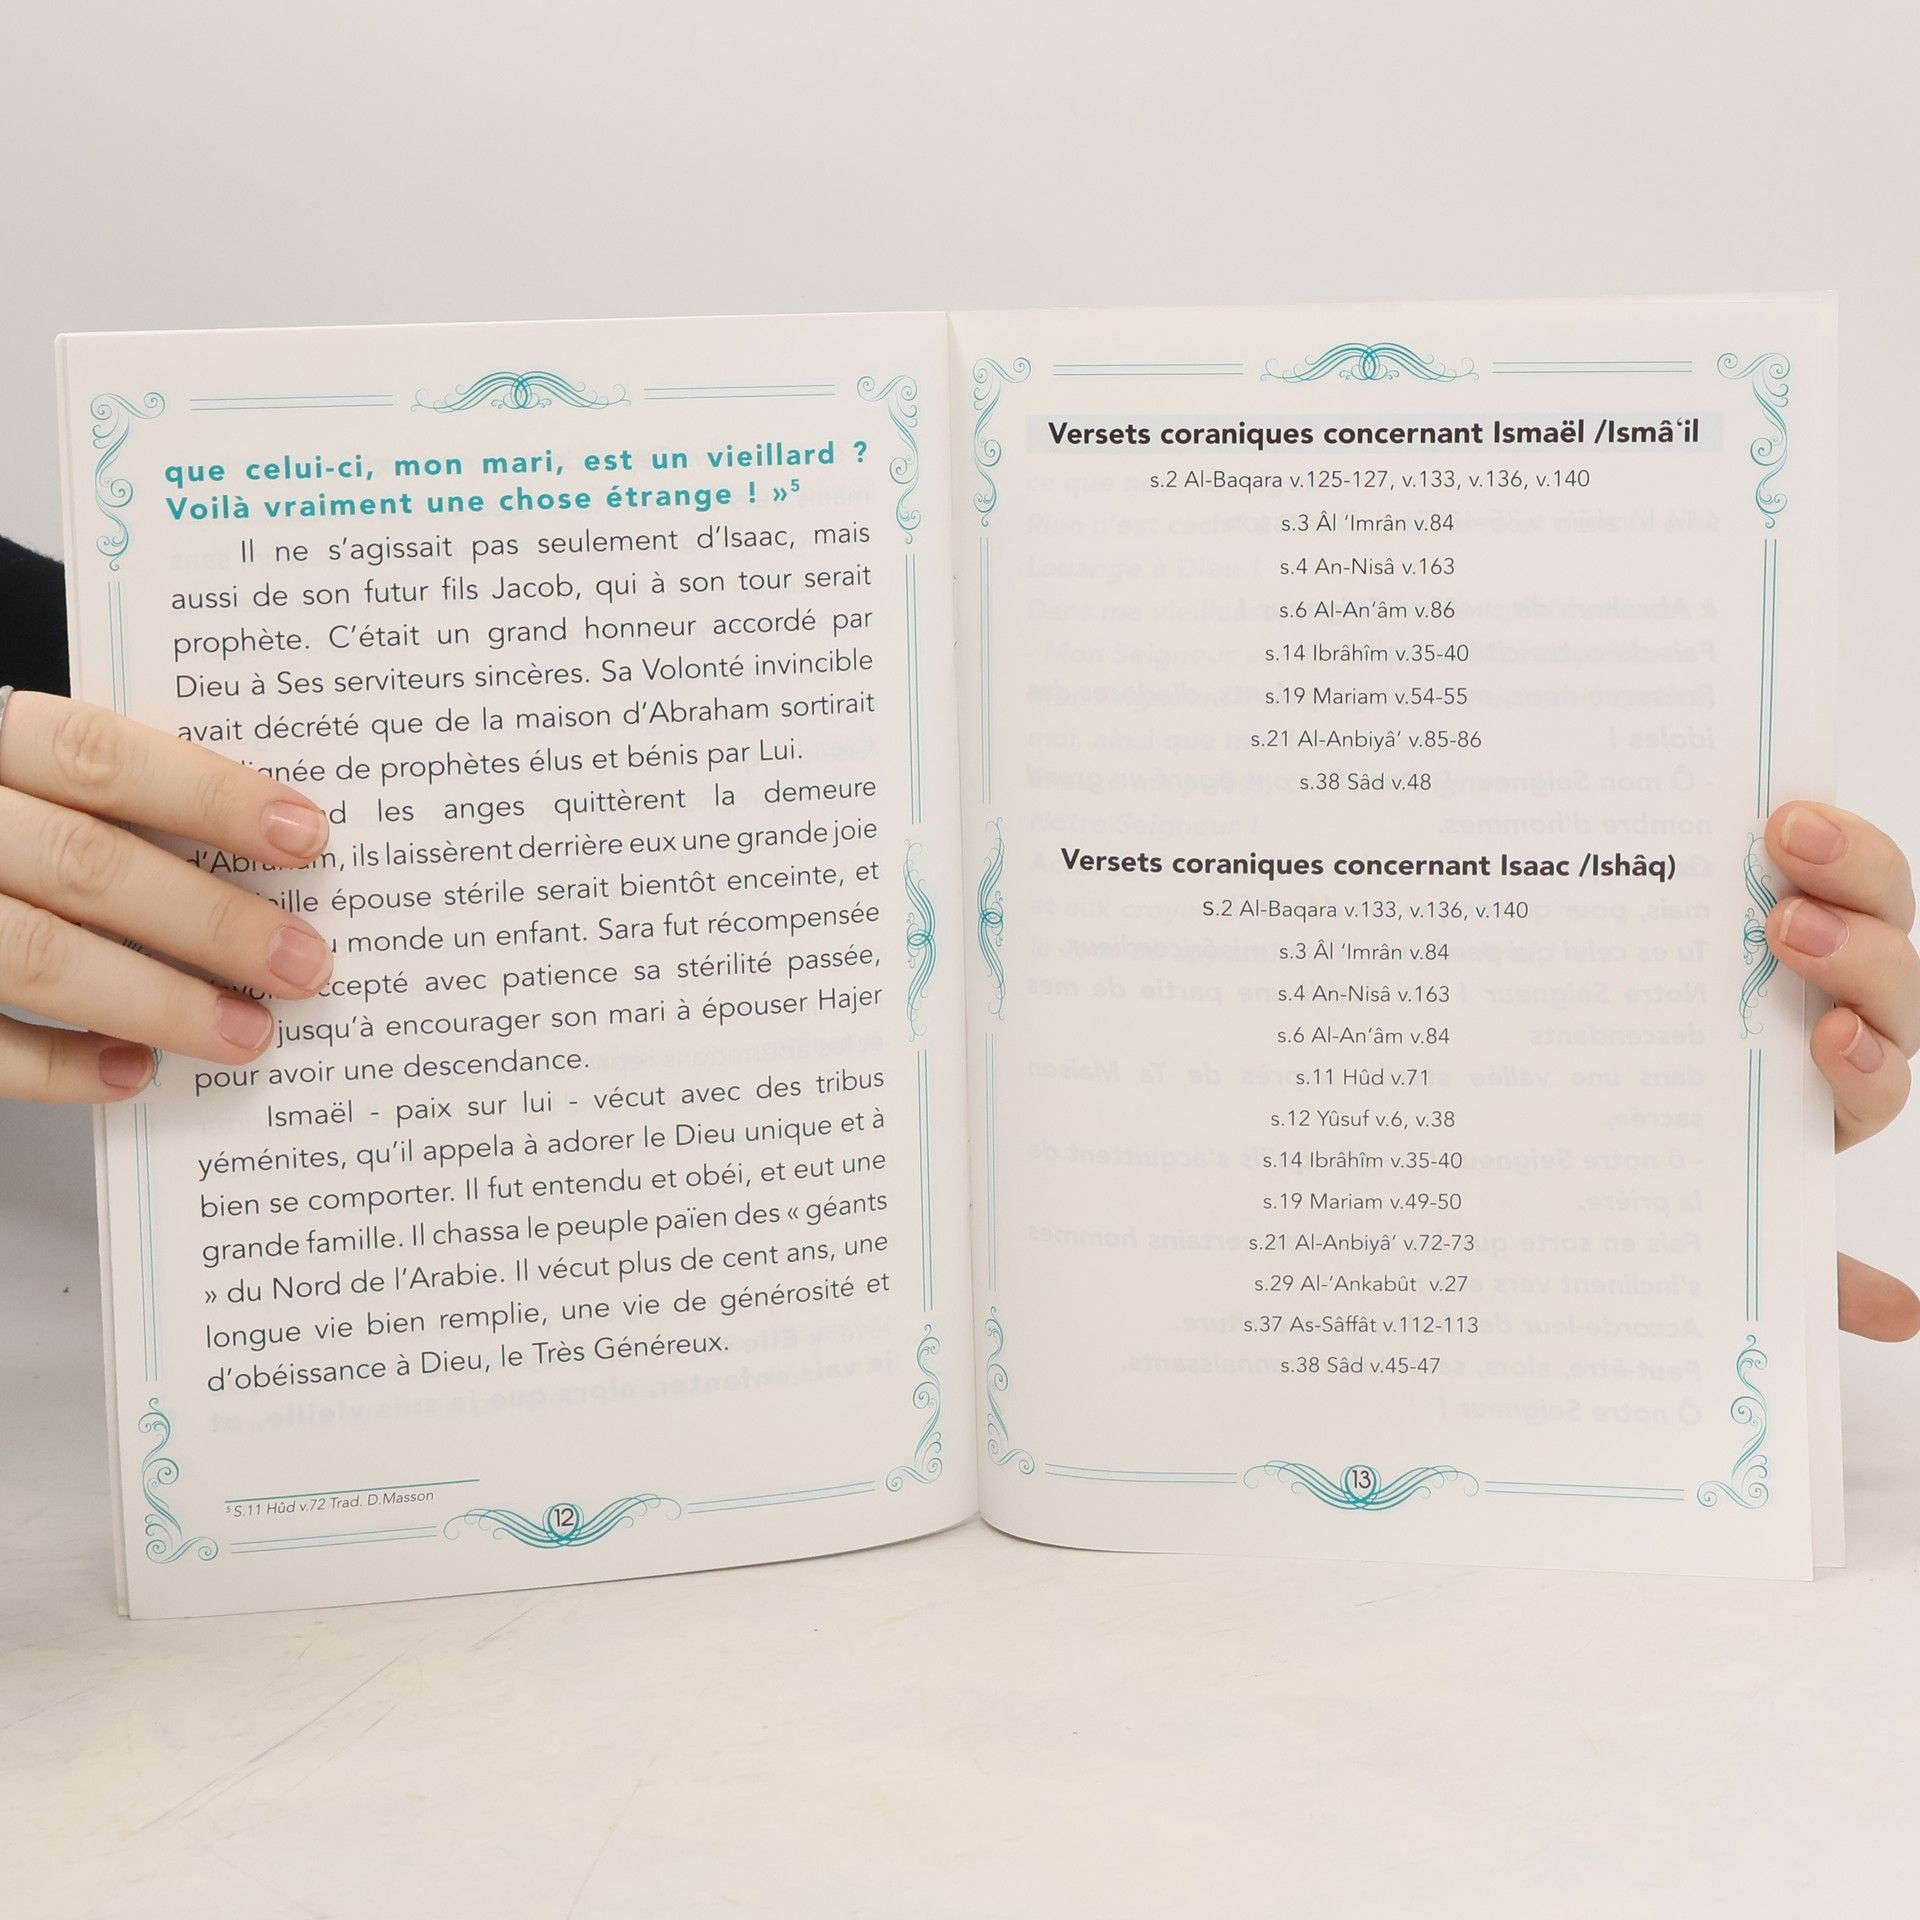 que celui-ci, mon mari, est un vieillard ?
Voilà vraiment une chose étrange ! »5
Il ne s'agissait pas seulement d'Isaac, mais
aussi de son futur fils Jacob, qui à son tour serait
prophète. C'était un grand honneur accordé par
Dieu à Ses serviteurs sincères. Sa Volonté invincible
avait décrété que de la maison d'Abraham sortirait
de prophètes élus et bénis par Lui.
les anges quittèrent la demeure
d'Abraham, ils laissèrent derrière eux une grande joie
épouse stérile serait bientôt enceinte, et
monde un enfant. Sara fut récompensée
avec patience sa stérilité passée,
jusqu'à encourager son mari à épouser Hajer
pour avoir une descendance.
Ismaël - paix sur lui - vécut avec des tribus
yéménites, qu'il appela à adorer le Dieu unique et à
bien se comporter. Il fut entendu et obéi, et eut une
grande famille. Il chassa le peuple païen des « géants
» du Nord de l'Arabie. Il vécut plus de cent ans, une
longue vie bien remplie, une vie de générosité et
d'obéissance à Dieu, le Très Généreux.
5 S.11 Hûd v.72 Trad. D.Masson
12
Versets coraniques concernant Ismaël /Ismâ‘il
s.2 Al-Baqara v.125-127, v.133, v.136, v.140
s.3 Âl ‘Imrân v.84
s.4 An-Nisâ v.163
s.6 Al-An’âm v.86
s.14 Ibrâhîm v.35-40
s.19 Mariam v.54-55
s.21 Al-Anbiyâ’ v.85-86
s.38 Sâd v.48
Versets coraniques concernant Isaac /Ishâq)
S.2 Al-Baqara v.133, v.136, v.140
s.3 Âl ‘Imrân v.84
s.4 An-Nisâ v.163
s.6 Al-An’âm v.84
s.11 Hûd v.71
s.12 Yûsuf v.6, v.38
s.14 Ibrâhîm v.35-40
s.19 Mariam v.49-50
s.21 Al-Anbiyâ’ v.72-73
s.29 Al-‘Ankabût v.27
s.37 As-Sâffât v.112-113
s.38 Sâd v.45-47
13